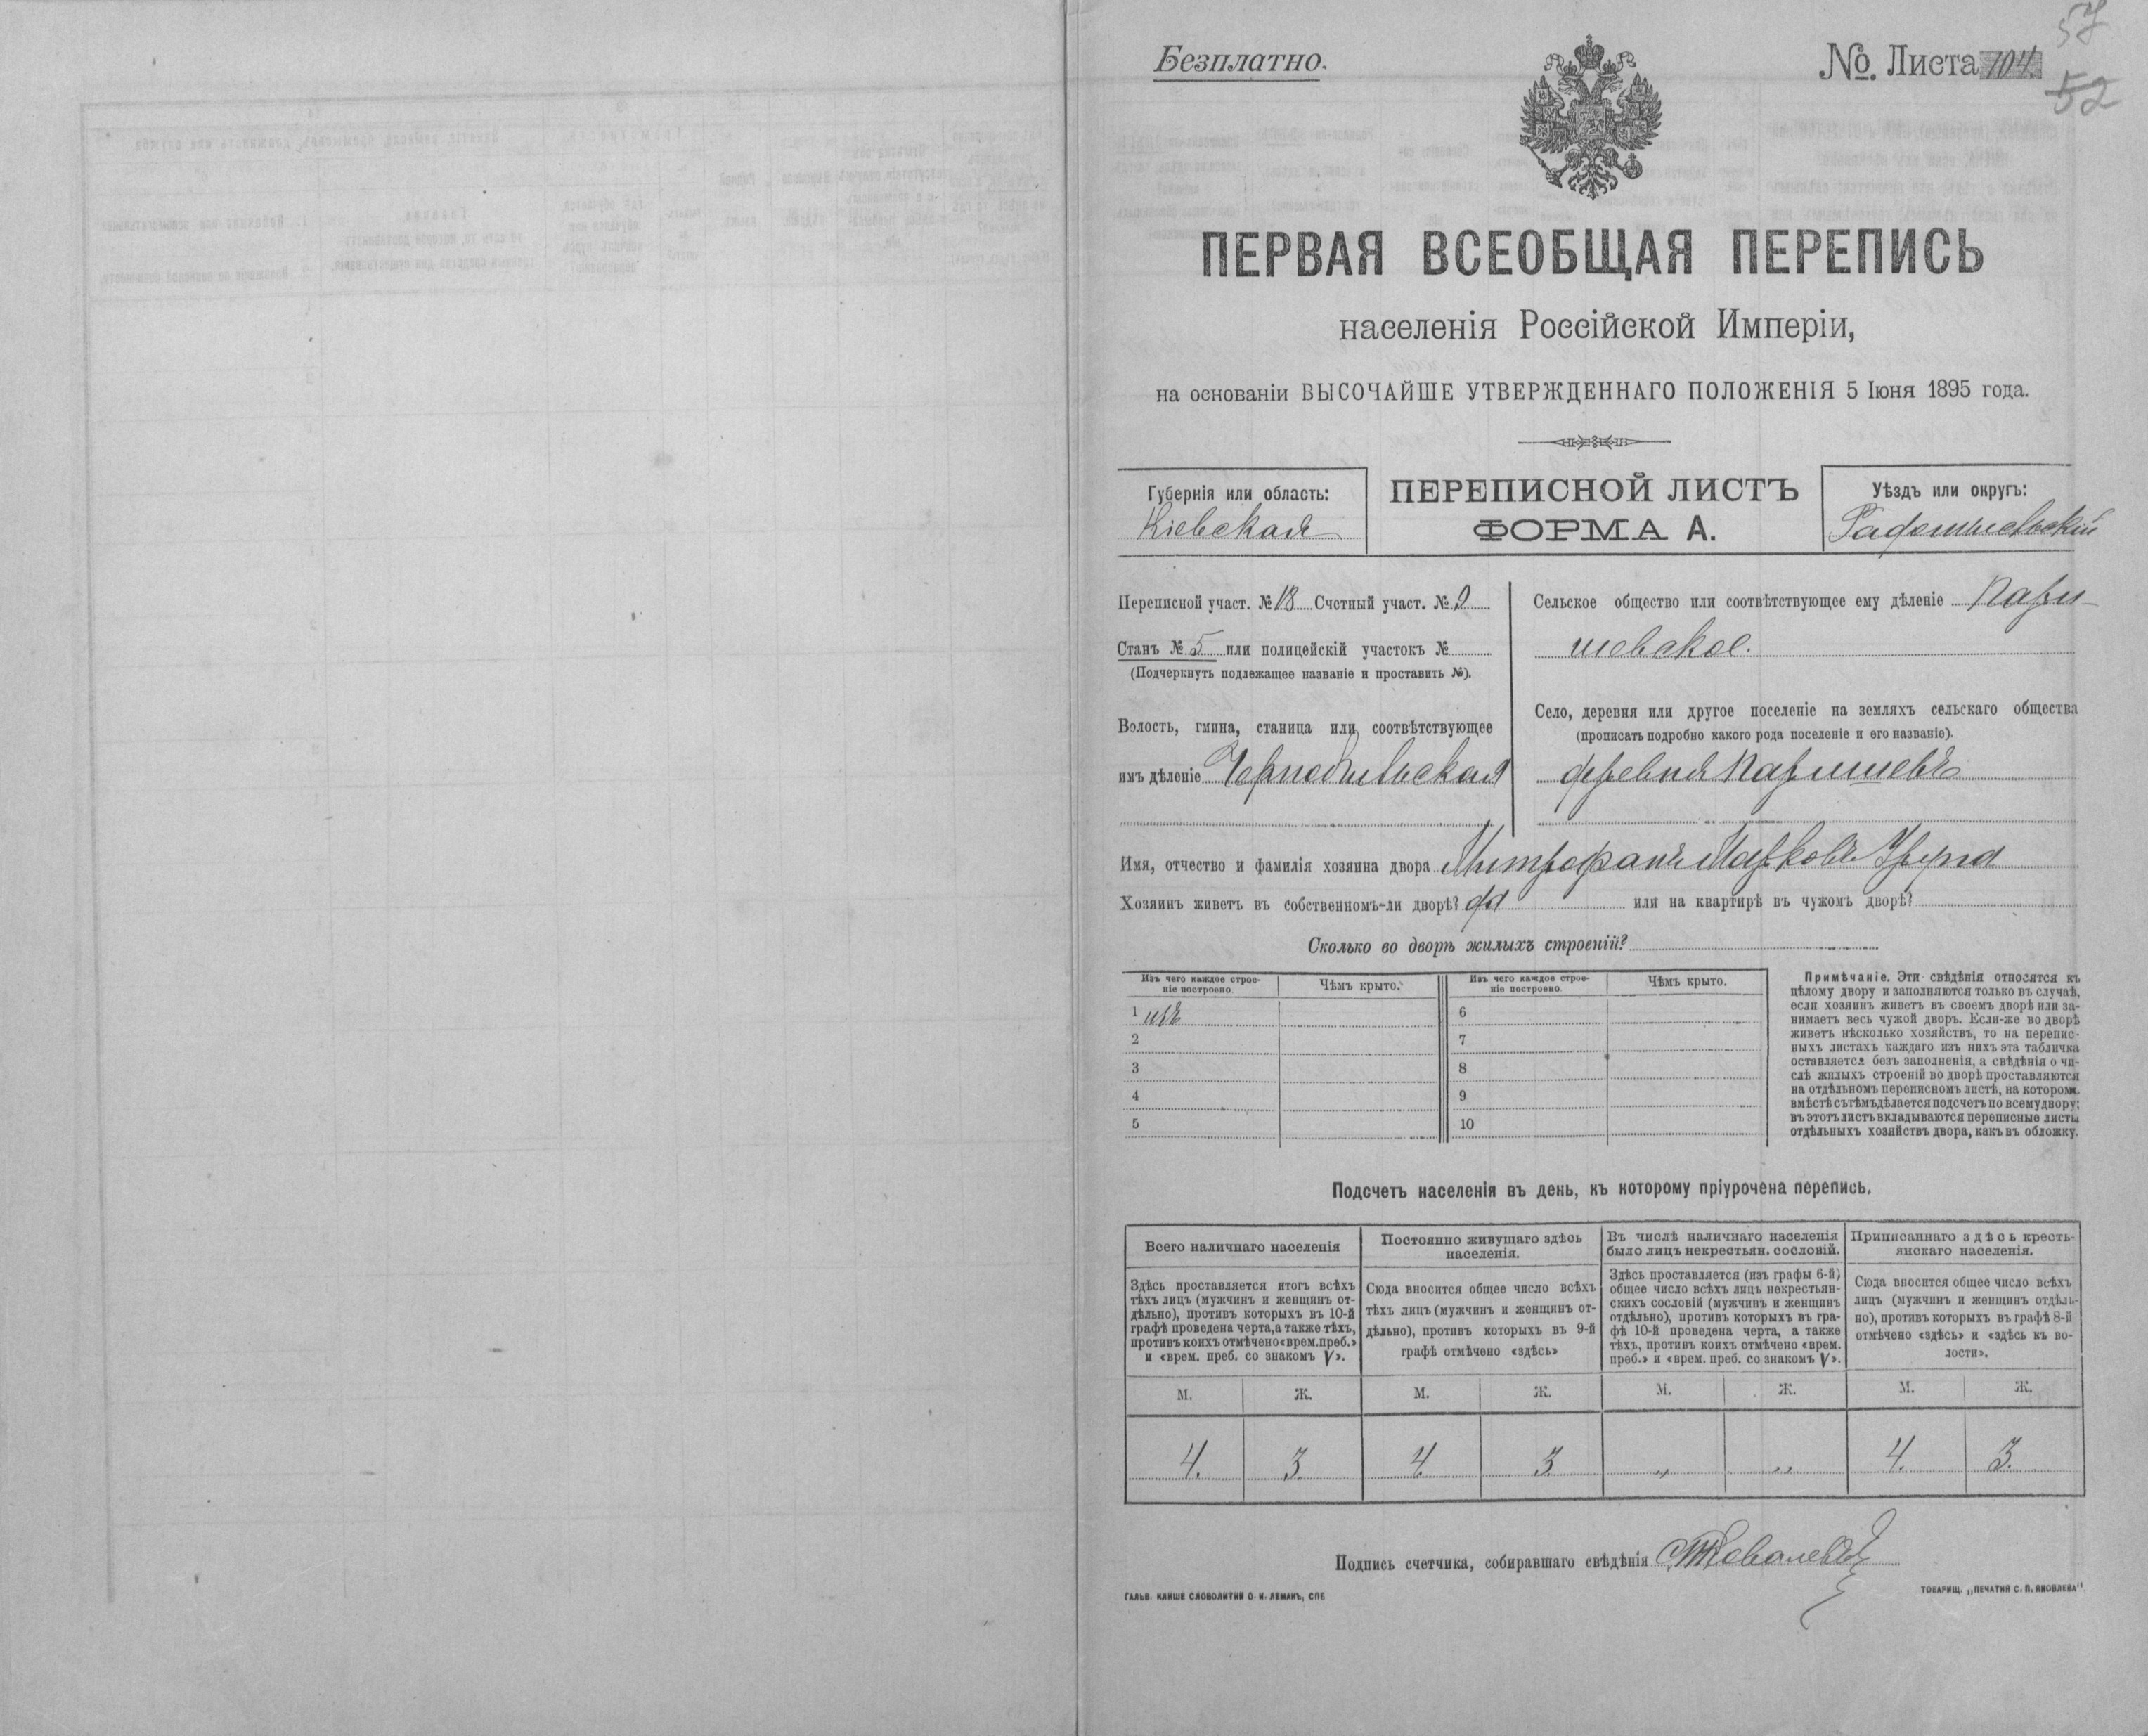 57
Безплатно.
№. Листа 104.
52
ПЕРВАЯ ВСЕОБЩАЯ ПЕРЕПИСЬ
населенія Россійской Имперіи,
на основаніи ВЫСОЧАЙШЕ УТВЕРЖДЕННАГО ПОЛОЖЕНІЯ 5 Іюня 1895 года.
Губернія или область:
Кіевская
ПЕРЕПИСНОЙ ЛИСТЪ
ФОРМА А.
Уѣздъ или округъ:
Радомысльскій
Переписной участ. № 18 Счетный участ. № 9
Станъ № 5 или полицейскій участокъ №
(Подчеркнуть подлежащее названіе и проставить №).
Волость, гмина, станица или соотвѣтствующее
имъ дѣленіе Чернобыльская
Сельское общество или соотвѣтствующее ему дѣленіе Пары-
шевское.
Село, деревня или другое поселеніе на земляхъ сельскаго общества
(прописать подробно какого рода поселеніе и его названіе).
деревня Парышевъ
Имя, отчество и фамилія хозяина двора Митрофанъ Марковъ
Хозяинъ живетъ въ собственномъ-ли дворѣ? да или на квартирѣ въ чужомъ дворѣ?
Сколько во дворѣ жилыхъ строеній?
Изъ чего каждое строе-
ніе построено.
Чѣмъ крыто.
Изъ чего каждое строе-
ніе построено.
Чѣмъ крыто.
1
2
3
4
5
6
7
8
9
10
Примѣчаніе. Эти свѣдѣнія относятся къ
цѣлому двору и заполняются только въ случаѣ,
если хозяинъ живетъ въ своемъ дворѣ или за-
нимаетъ весь чужой дворъ. Если-же во дворѣ
живетъ нѣсколько хозяйствъ, то на перепис-
ныхъ листахъ каждаго изъ нихъ эта табличка
оставляется безъ заполненія, а свѣдѣнія о чи-
слѣ жилыхъ строеній во дворѣ проставляются
на отдѣльномъ переписномъ листѣ, на которомъ
вмѣстѣ сътѣмъ дѣлается подсчетъ по всему двору;
въ этотъ листъ вкладываются переписные листы
отдѣльныхъ хозяйствъ двора, какъ въ обложку.
Подсчетъ населенія въ день, къ которому пріурочена перепись.
Всего наличнаго населенія
Здѣсь проставляется итогъ всѣхъ
тѣхъ лицъ (мужчинъ и женщинъ от-
дѣльно), противъ которыхъ въ 10-й
графѣ проведена черта, а также тѣхъ,
противъ коихъ отмѣчено «врем. преб.»
и «врем. преб. со знакомъ V».
Постоянно живущаго здѣсь
населенія.
Сюда вносится общее число всѣхъ
тѣхъ лицъ (мужчинъ и женщинъ от-
дѣльно), противъ которыхъ въ 9-й
графѣ отмѣчено «здѣсь»
Въ числѣ наличнаго населенія
было лицъ некрестьян. сословій.
Здѣсь проставляется (изъ графы 6-й)
общее число всѣхъ лицъ некрестьян-
скихъ сословій (мужчинъ и женщинъ
отдѣльно), противъ которыхъ въ гра-
фѣ 10-й проведена черта, а также
тѣхъ, противъ коихъ отмѣчено «врем.
преб.» и «врем. преб. со знакомъ V».
Приписаннаго здѣсь кресть-
янскаго населенія.
Сюда вносится общее число всѣхъ
лицъ (мужчинъ и женщинъ отдѣль-
но), противъ которыхъ въ графѣ 8-й
отмѣчено «здѣсь» и «здѣсь къ во-
лости».
М. Ж. М. Ж. М. Ж. М. Ж.
4. 3. 4. 3. „ „ 4. 3.
Подпись счетчика, собиравшаго свѣдѣнія
ГАЛЬВ. КЛИШЕ СЛОВОЛИТНИ О. И. ЛЕМАНЪ, СПБ
ТОВАРИЩ. „ПЕЧАТНЯ С. П. ЯКОВЛЕВА"